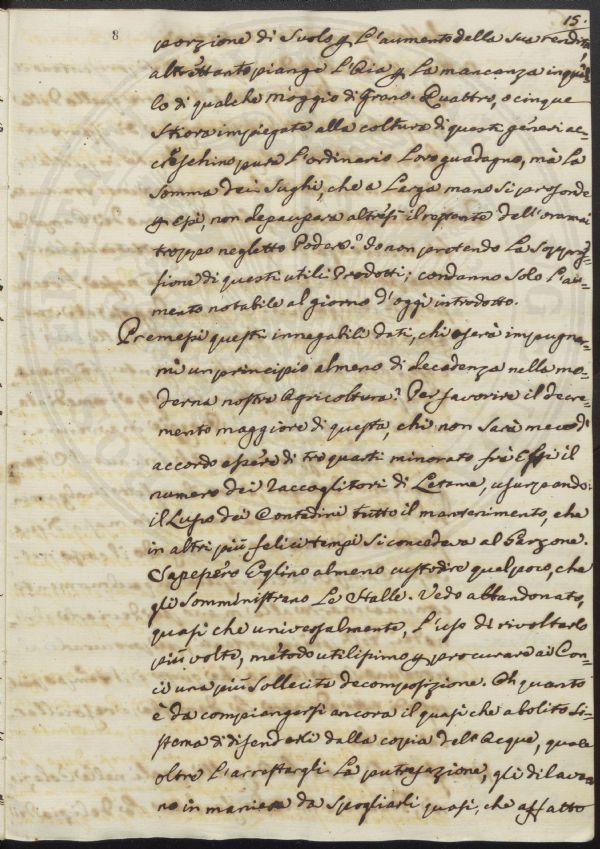 15.
8
porzione di Suolo p. L'aumento della sua rendita,
altrettanto piange L'Aia p. La mancanza in quel=
lo di qualche moggio di Grano. Quattro, o cinque
Stiora impiegate alla coltura di questi generi ac=
creschino pure L'ordinario Loro guadagno, mà La
Somma dei Sughi, che a Larga mano si profonde
p. Essi, non depaupera altresì il restante dell'oramai
troppo negletto Podere? Io non pretendo La Soppres=
sione di questi utili Prodotti; condanno Solo L'au=
mento notabile al giorno d'oggi introdotto.
Premessi questi innegabili dati, chi oserà impugnar=
mi un principio almeno di decadenza nella mo=
derna nostra Agricoltura? Per favorire il decre=
mento maggiore di questa, chi non Sarà meco di
accordo essere di tre quarti minorato frà Essi il
numero dei Raccoglitori di Letame, usurpando
il Lusso dei Contadini tutto il mantenimento, che
in altri più felici tempi Si concedeva al Garzone.
Sapessero Eglino almeno custodire quel poco, che
gli Somministrano Le Stalle. Vedo abbandonato,
quasi che universalmente, L'uso di rivoltarlo
più volte, metodo utilissimo p. procurare ai Con=
ci una più Sollecita decomposizione. Oh quanto
è da compiangersi ancora il quasi che abolito Si=
stema di difenderli dalla copia dell'Acque, quale
oltre L'arrestargli La putrefazione, gli dilava=
no in maniera da Spogliarli quasi, che affatto